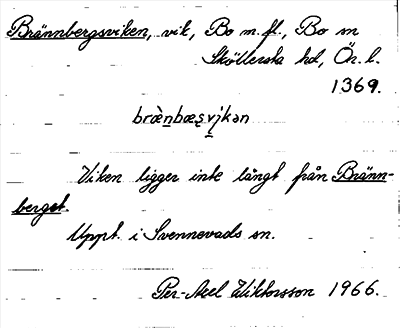 Brännbergsviken, vik, Bo m.fl., Bo sn
Sköllersta hd, Ör. l.
1369.
bræ̀n̲bæʂvi̬kən
Viken ligger inte långt från Bränn-
berget.
Uppt. i Svennevads sn.
Per-Axel Wiktorsson 1966.